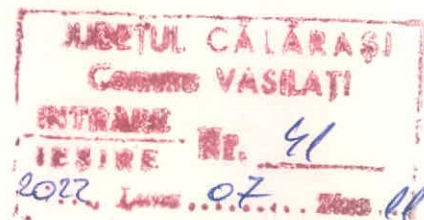 JUDEȚUL CĂLĂRAȘI
Comuna VASILAȚI
INTRARE
IEȘIRE Nr. 41
2022 Luna 07 Ziua 11